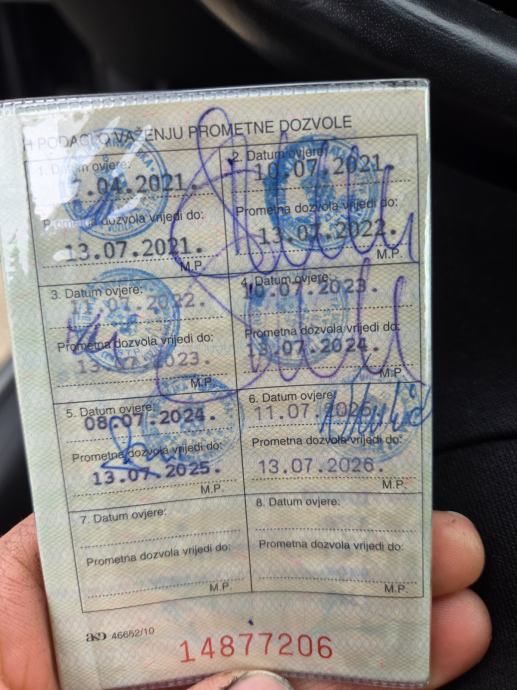 PODACI O VAŽENJU PROMETNE DOZVOLE
1. Datum ovjere:
.04.2021.
Prometna dozvola vrijedi do:
13.07.2021.
M.P.
2. Datum ovjere:
10.07.2021.
Prometna dozvola vrijedi do:
13.07.2022.
M.P.
3. Datum ovjere:
.2022.
Prometna dozvola vrijedi do:
13.07.2023.
M.P.
4. Datum ovjere:
10.07.2023.
Prometna dozvola vrijedi do:
13.07.2024.
M.P.
5. Datum ovjere:
08.07.2024.
Prometna dozvola vrijedi do:
13.07.2025.
M.P.
6. Datum ovjere:
11.07.
Prometna dozvola vrijedi do:
13.07.2026.
M.P.
7. Datum ovjere:
Prometna dozvola vrijedi do:
M.P.
8. Datum ovjere:
Prometna dozvola vrijedi do:
M.P.
46652/10
14877206